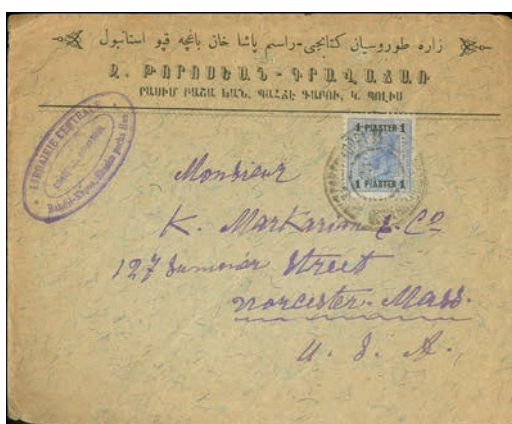 زاره طوروسیان کتابجی-راسم پاشا خان باغچه قپو استانبول
Զ. ԹՈՐՈՍԵԱՆ - ԳՐԱՎԱՃԱՌ
ՐԱՍԻՄ ՓԱՇԱ ԽԱՆ, ՊԱՀՃԷ ԳԱԲՈՒ, Կ. ՊՈԼԻՍ
LIBRAIRIE CENTRALE
1 PIASTER 1
1 PIASTER 1
Monsieur
K. Markarian & Co
127 Summer Street
Worcester-Mass.
U. S. A.